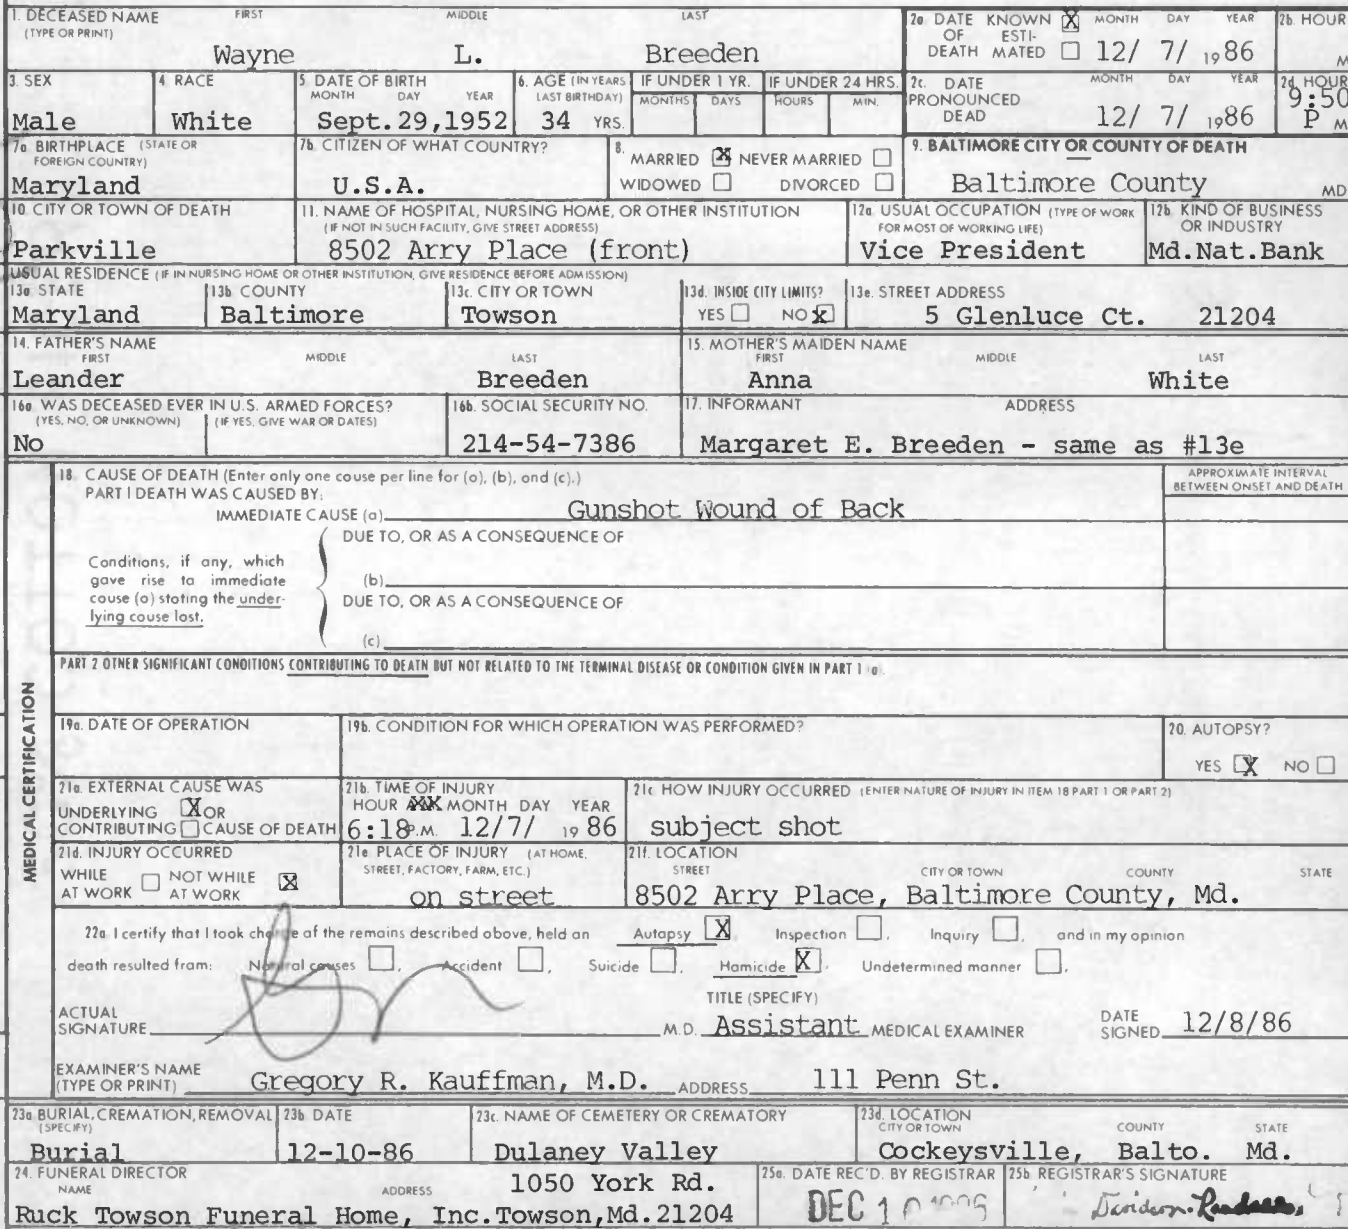 1. DECEASED NAME (TYPE OR PRINT) FIRST MIDDLE LAST
Wayne L. Breeden
2a. DATE OF DEATH KNOWN X ESTIMATED MONTH DAY YEAR 2b. HOUR
12/ 7/ 1986 M
3. SEX 4. RACE 5. DATE OF BIRTH MONTH DAY YEAR 6. AGE (IN YEARS LAST BIRTHDAY) IF UNDER 1 YR. MONTHS DAYS IF UNDER 24 HRS. HOURS MIN.
Male White Sept.29,1952 34 YRS.
2c. DATE PRONOUNCED DEAD MONTH DAY YEAR 2d. HOUR
12/ 7/ 1986 9:50 P M
7a. BIRTHPLACE (STATE OR FOREIGN COUNTRY) 7b. CITIZEN OF WHAT COUNTRY?
Maryland U.S.A.
8. MARRIED X NEVER MARRIED
WIDOWED DIVORCED
9. BALTIMORE CITY OR COUNTY OF DEATH
Baltimore County MD
10. CITY OR TOWN OF DEATH 11. NAME OF HOSPITAL, NURSING HOME, OR OTHER INSTITUTION (IF NOT IN SUCH FACILITY, GIVE STREET ADDRESS) 12a. USUAL OCCUPATION (TYPE OF WORK FOR MOST OF WORKING LIFE) 12b. KIND OF BUSINESS OR INDUSTRY
Parkville 8502 Arry Place (front) Vice President Md.Nat.Bank
USUAL RESIDENCE (IF IN NURSING HOME OR OTHER INSTITUTION, GIVE RESIDENCE BEFORE ADMISSION)
13a. STATE 13b. COUNTY 13c. CITY OR TOWN 13d. INSIDE CITY LIMITS? 13e. STREET ADDRESS
Maryland Baltimore Towson YES NO X 5 Glenluce Ct. 21204
14. FATHER'S NAME FIRST MIDDLE LAST 15. MOTHER'S MAIDEN NAME FIRST MIDDLE LAST
Leander Breeden Anna White
16a. WAS DECEASED EVER IN U.S. ARMED FORCES? (YES, NO, OR UNKNOWN) (IF YES, GIVE WAR OR DATES) 16b. SOCIAL SECURITY NO. 17. INFORMANT ADDRESS
No 214-54-7386 Margaret E. Breeden - same as #13e
MEDICAL CERTIFICATION
18. CAUSE OF DEATH (Enter only one cause per line for (a), (b), and (c).)
APPROXIMATE INTERVAL BETWEEN ONSET AND DEATH
PART I DEATH WAS CAUSED BY:
IMMEDIATE CAUSE (a) Gunshot Wound of Back
DUE TO, OR AS A CONSEQUENCE OF
Conditions, if any, which gave rise to immediate cause (a) stating the underlying cause last.
(b)
DUE TO, OR AS A CONSEQUENCE OF
(c)
PART 2 OTHER SIGNIFICANT CONDITIONS CONTRIBUTING TO DEATH BUT NOT RELATED TO THE TERMINAL DISEASE OR CONDITION GIVEN IN PART 1 (a)
19a. DATE OF OPERATION 19b. CONDITION FOR WHICH OPERATION WAS PERFORMED? 20. AUTOPSY?
YES X NO
21a. EXTERNAL CAUSE WAS UNDERLYING X OR CONTRIBUTING CAUSE OF DEATH
21b. TIME OF INJURY HOUR MONTH DAY YEAR
6:18 P.M. 12/7/ 1986
21c. HOW INJURY OCCURRED (ENTER NATURE OF INJURY IN ITEM 18 PART 1 OR PART 2)
subject shot
21d. INJURY OCCURRED WHILE AT WORK NOT WHILE AT WORK X
21e. PLACE OF INJURY (AT HOME, STREET, FACTORY, FARM, ETC.)
on street
21f. LOCATION STREET CITY OR TOWN COUNTY STATE
8502 Arry Place, Baltimore County, Md.
22a. I certify that I took charge of the remains described above, held an Autopsy X, Inspection, Inquiry, and in my opinion
death resulted from: Natural causes, Accident, Suicide, Homicide X, Undetermined manner,
ACTUAL SIGNATURE M.D. TITLE (SPECIFY) Assistant MEDICAL EXAMINER DATE SIGNED 12/8/86
EXAMINER'S NAME (TYPE OR PRINT) Gregory R. Kauffman, M.D. ADDRESS 111 Penn St.
23a. BURIAL, CREMATION, REMOVAL (SPECIFY) 23b. DATE 23c. NAME OF CEMETERY OR CREMATORY 23d. LOCATION CITY OR TOWN COUNTY STATE
Burial 12-10-86 Dulaney Valley Cockeysville, Balto. Md.
24. FUNERAL DIRECTOR NAME ADDRESS
1050 York Rd.
Ruck Towson Funeral Home, Inc.Towson,Md.21204
25a. DATE REC'D. BY REGISTRAR 25b. REGISTRAR'S SIGNATURE
DEC 10